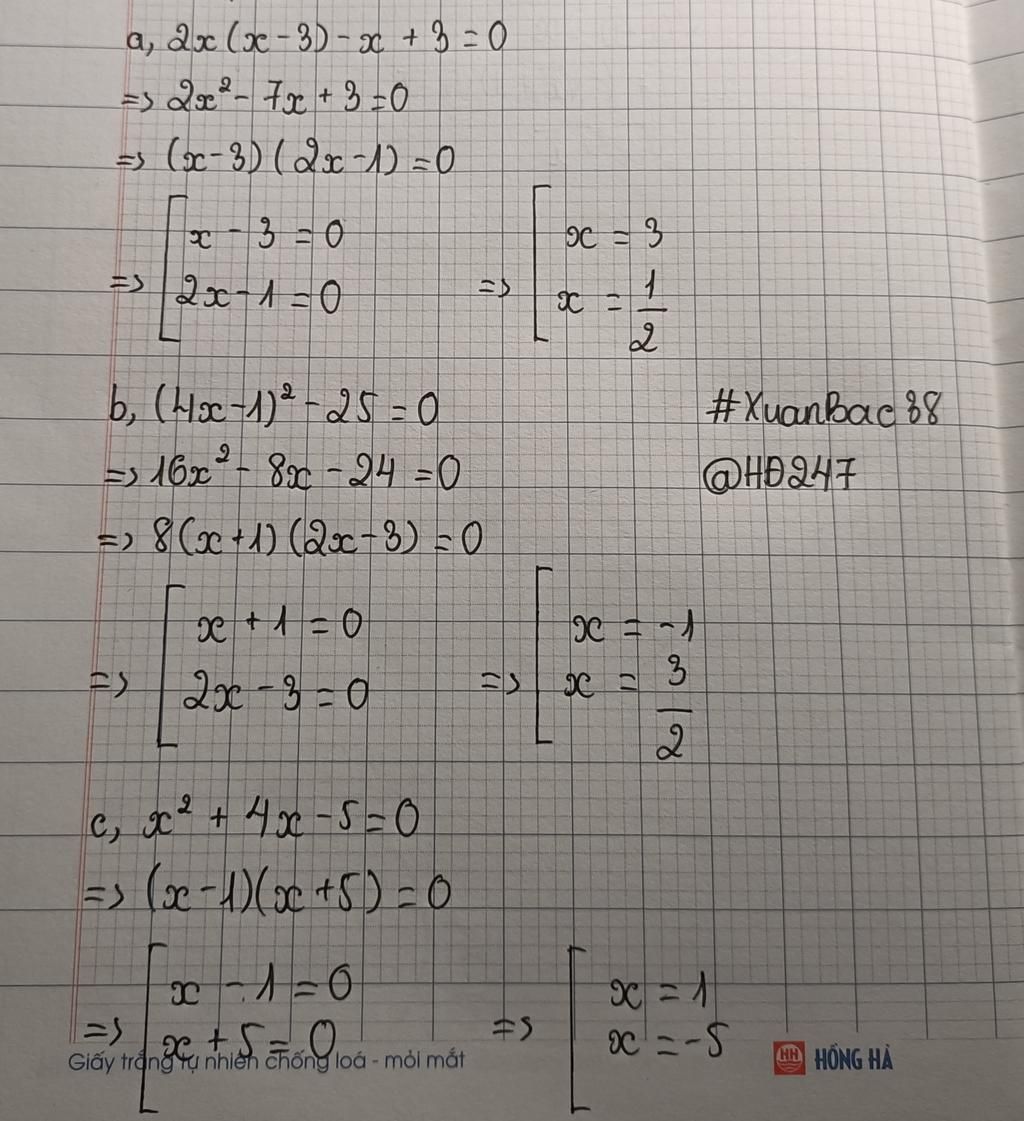 a, 2x(x-3)-x+3=0
=> 2x²-7x+3=0
=> (x-3)(2x-1)=0
=> [x-3=0 => [x=3
2x-1=0 x=1/2
b, (4x-1)²-25=0 #XuanBac88
=> 16x²-8x-24=0 @HĐ247
=> 8(x+1)(2x-3)=0
=> [x+1=0 => [x=-1
2x-3=0 x=3/2
c, x²+4x-5=0
=> (x-1)(x+5)=0
=> [x-1=0 => [x=1
x+5=0 x=-5
Giấy trắng tự nhiên chống loá - mỏi mắt HH HỒNG HÀ